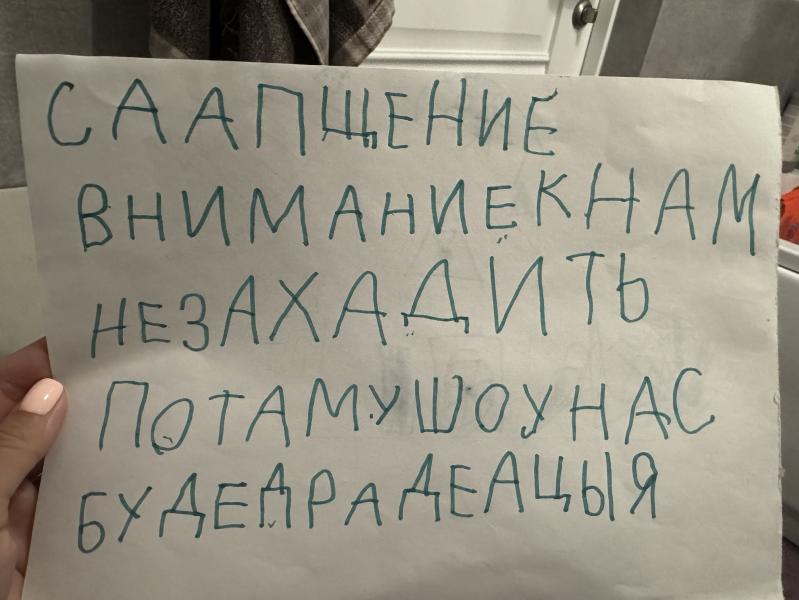 СААПЩЕНИЕ
ВНИМАНИЕКНАМ
НЕЗАХАДИТЬ
ПОТАМУШОУНАС
БУДЕДРАДЕАЦЫЯ